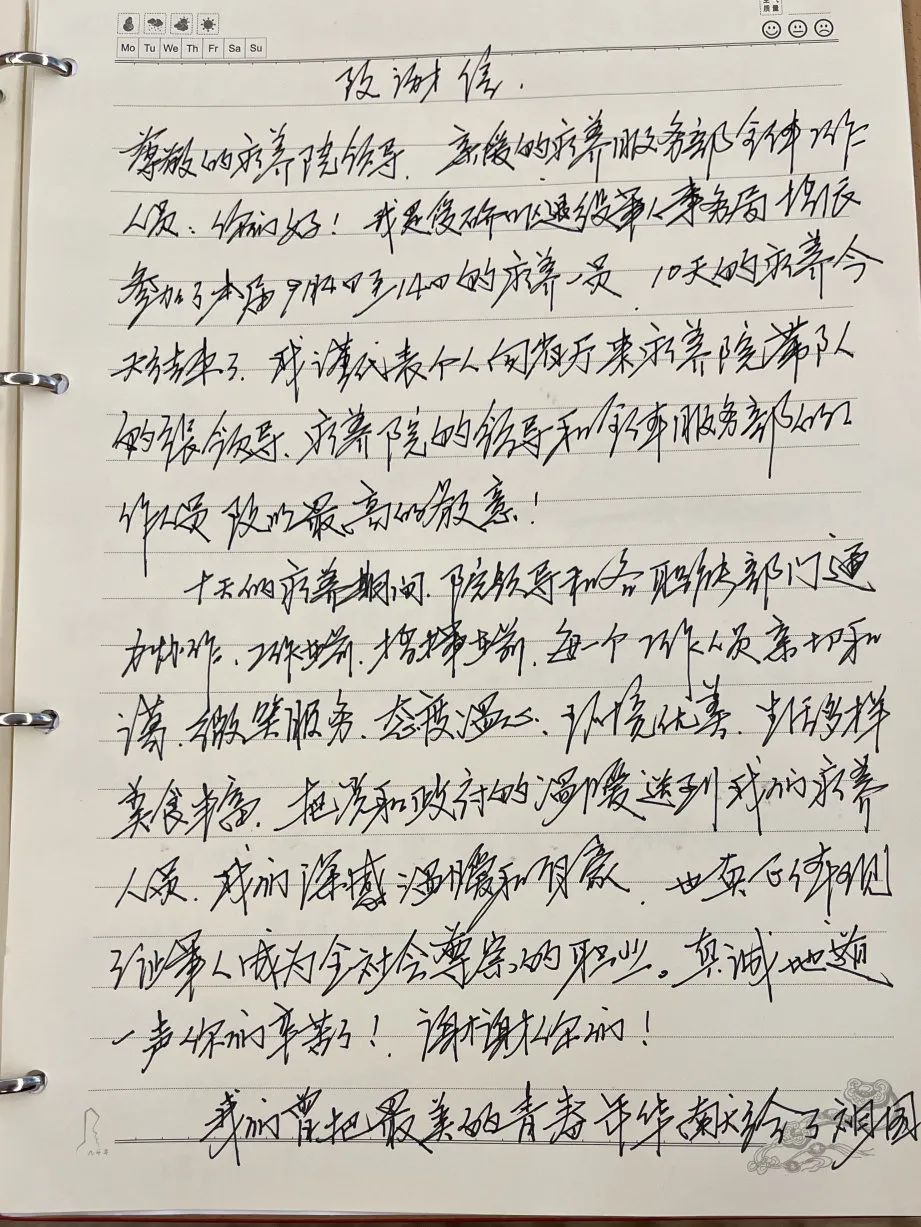 空气
质量
Mo Tu We Th Fr Sa Su
致谢信.
尊敬的疗养院领导、亲爱的疗养服务部全体工作
人员：你们好！我是退役军人事务局
参加了本届9月4日至14日的疗养一员、10天的疗养今
天结束了、我谨代表个人向 疗养院带队
的张领导、疗养院的领导和全体服务部的工
作人员致以最高的敬意！
十天的疗养期间、院领导和各职能部门通
力协作、工作 每一个工作人员亲切和
蔼、微笑服务、态度温心、环境优美、生活多样
美食丰富、把党和政府的温暖送到我们疗养
人员、我们深感温暖和自豪、也真正体现
了让军人成为全社会尊崇的职业。真诚地道
一声你们辛苦了！谢谢你们！
我们曾把最美的青春年华献给了祖国